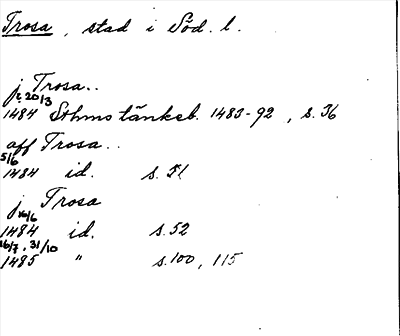 Trosa, stad i Söd. l.
j Trosa..
c. 20/3
1484 Sthms tänkeb. 1483-92, s. 36
aff Trosa..
5/6
1484 id. s. 51
j Trosa
16/6
1484 id. s. 52
16/7, 31/10
1485 " s. 100, 115